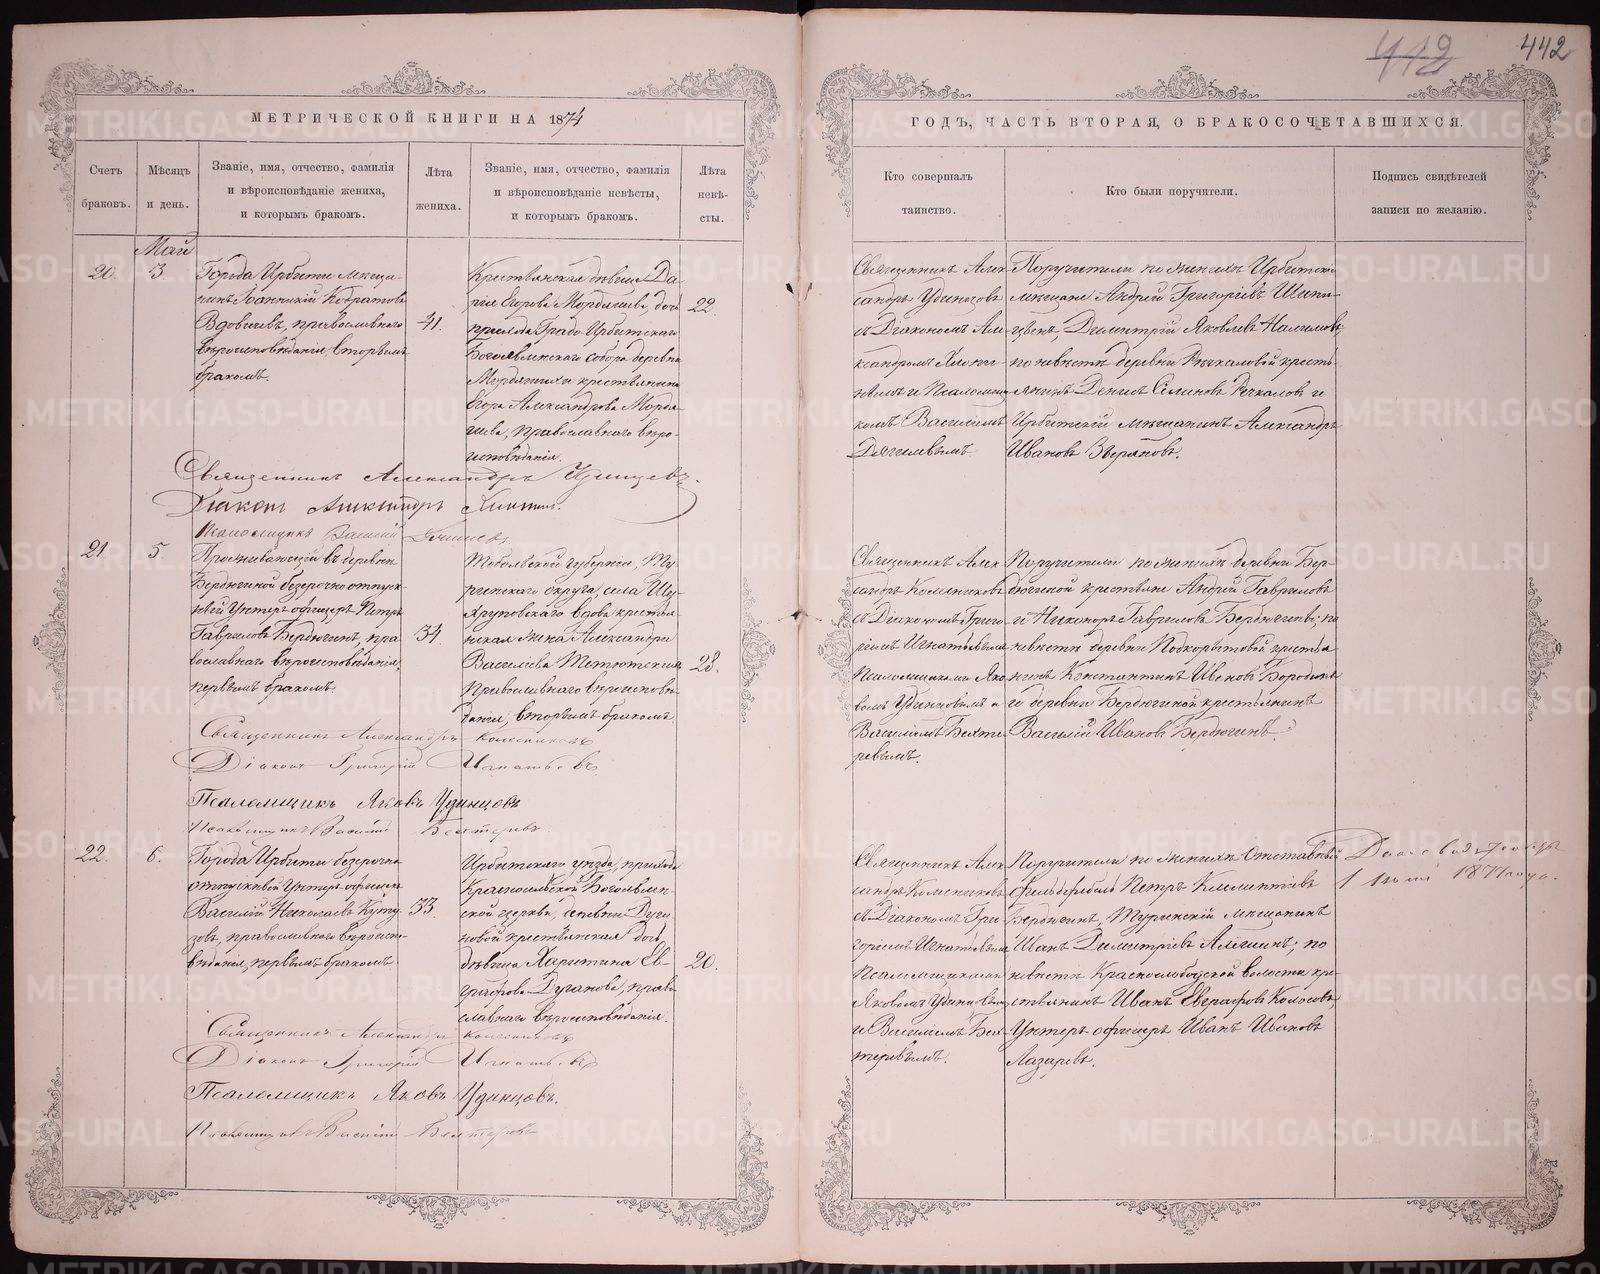 412
442
МЕТРИЧЕСКОЙ КНИГИ НА 1874
ГОДЪ, ЧАСТЬ ВТОРАЯ, О БРАКОСОЧЕТАВШИХСЯ.
Счетъ
браковъ.
Мѣсяцъ
и день.
Званіе, имя, отчество, фамилія
и вѣроисповѣданіе жениха,
и которымъ бракомъ.
Лѣта
жениха.
Званіе, имя, отчество, фамилія
и вѣроисповѣданіе невѣсты,
и которымъ бракомъ.
Лѣта
невѣ-
сты.
Кто совершалъ
таинство.
Кто были поручители.
Подпись свидѣтелей
записи по желанію.
Май
20.
3.
Города Ирбити мѣща-
нинъ Іоанникій
православнаго
вѣроисповѣданія, вторымъ
бракомъ.
41.
Крестьянская дѣвица Да-
рія Егорова дочь
прихода Градо-Ирбитскаго
Богоявленскаго собора деревни
крестьянина
Егора Александрова
православнаго вѣро-
исповѣданія.
22.
Священникъ Алек
сандръ Удинцовъ
съ Діакономъ Але-
ксандромъ
и Псаломщи
комъ Василіемъ
Дягилевымъ.
Поручители по женихѣ Ирбитскіе
мѣщане Андрей Григорьевъ
Димитрій Яковлевъ
по невѣстѣ деревни Речкаловой кресть-
янинъ Денисъ Речкаловъ и
Ирбитскій мѣщанинъ Александръ
Ивановъ Звѣряковъ.
Священникъ Александръ Удинцевъ.
Діаконъ Александръ
Псаломщикъ Василій
21.
5.
Проживающій въ деревнѣ
Бердюгиной безсрочно отпуск-
ной Унтеръ офицеръ Петръ
Гавриловъ Бердюгинъ, пра
вославнаго вѣроисповѣданія,
первымъ бракомъ.
34.
Тобольской губерніи, Ту-
ринскаго округа, села
вдова крестья
нская жена Александра
Василіева
Православнаго вѣроисповѣ
данія, вторымъ бракомъ.
28.
Священникъ Алек
сандръ Колесниковъ
съ Діакономъ Григо
ріемъ Игнатьевымъ
Псаломщиками Яко
вомъ Удинцовымъ и
Василіемъ Бехте-
ревымъ.
Поручители по женихѣ деревни Бер-
дюгиной крестьяне Андрей Гавриловъ
и Никаноръ Гавриловъ Бердюгины; по
невѣстѣ деревни Подкорытовой крестья
нинъ Константинъ Ивановъ
и деревни Бердюгиной крестьянинъ
Василій Ивановъ Бердюгинъ.
Священникъ Александръ Колесниковъ
Діаконъ Григорій Игнатьевъ
Псаломщикъ Яковъ Удинцовъ
Псаломщикъ Василій Бехтеревъ
22.
6.
Города Ирбити безсрочно
отпускной Унтеръ офицеръ
Василій Николаевъ Куту
зовъ, православнаго вѣроиспо-
вѣданія, первымъ бракомъ.
33.
Ирбитскаго уѣзда, прихода
Краснослободской Богоявлен-
ской церкви, деревни Дуга-
новой крестьянская дочь
дѣвица Харитина Ев-
графова Дуганова, право
славнаго вѣроисповѣданія.
20.
Священникъ Алек
сандръ Колесниковъ
съ Діакономъ Гри-
горіемъ Игнатьевымъ
Псаломщиками
Яковомъ Удинцовымъ
и Василіемъ Бех-
теревымъ.
Поручители по женихѣ Отставной
фельдфебель Петръ Климентіевъ
Бердюгинъ, Туринскій мѣщанинъ
Иванъ Димитріевъ Алешинъ; по
невѣстѣ Краснослободской волости кре
стьянинъ Иванъ Евграфовъ Колосовъ,
Унтеръ офицеръ Иванъ Ивановъ
Лазаревъ.
1874 года.
Священникъ Александръ Колесниковъ
Діаконъ Григорій Игнатьевъ
Псаломщикъ Яковъ Удинцовъ.
Псаломщикъ Василій Бехтеревъ
METRIKI.GASO-URAL.RU